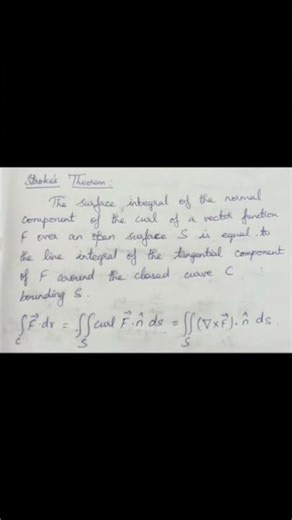 Stroke's Theorem :
The surface integral of the normal
component of the curl of a vector function
F over an open surface S is equal to
the line integral of the tangential component
of F around the closed curve C
bounding S.
∫_C F⃗·dr = ∬_S curl F⃗·n̂ ds = ∬_S (∇×F⃗)·n̂ ds